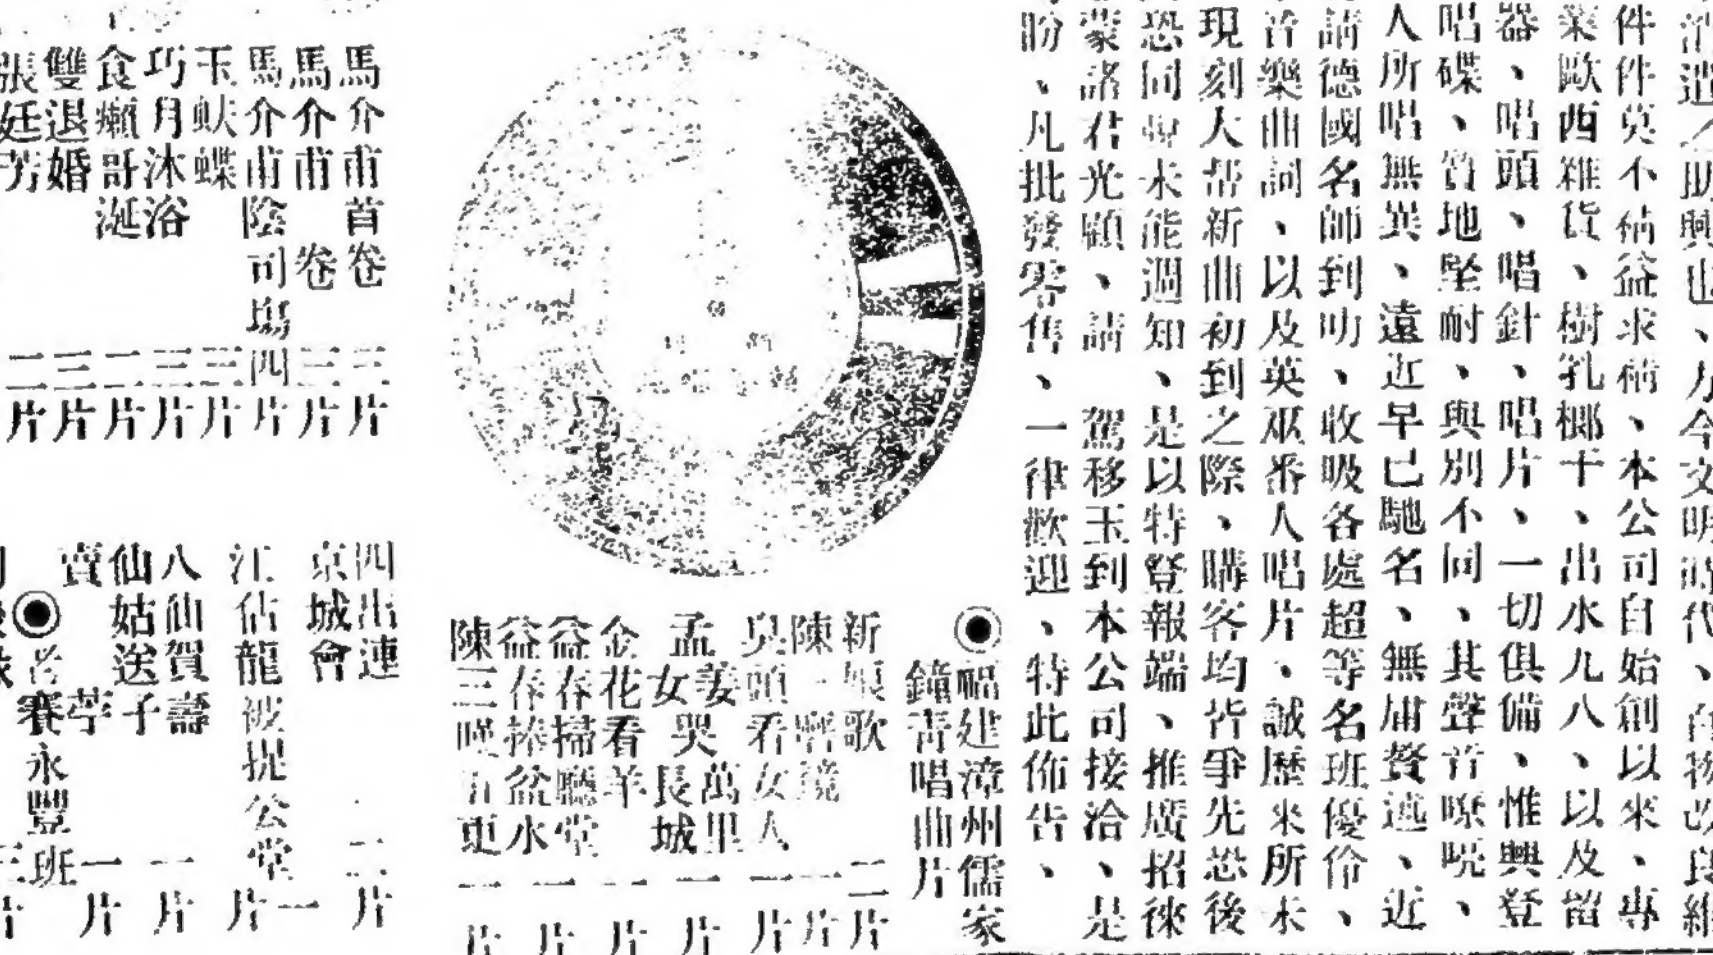 消遣之助興也、方今文明時代、百物改良維
件件莫不精益求精、本公司自始創以來、專
業歐西雜貨、樹乳榔干、出水九八、以及留
器、唱頭、唱針、唱片、一切俱備、惟興登
唱碟、質地堅耐、與別不同、其聲音嘹喨、
人所唱無異、遠近早已馳名、無庸贅述、近
請德國名師到叻、收吸各處超等名班優伶、
音樂曲詞、以及英巫番人唱片、誠歷來所未
現刻大帮新曲初到之際、購客均皆爭先恐後
恐同胞未能過知、是以特登報端、推廣招徠
蒙諸君光顧、請 駕移玉到本公司接洽、是
盼、凡批發零售、一律歡迎、特此佈告、
◉福建漳州儒家
鐘靑唱曲片
新娘歌 二片
陳三磨鏡 一片
臭頭看女人 一片
孟姜女哭萬里長城 一片
金花看羊 一片
益春掃廳堂 一片
益春捧盆水 一片
陳三嘆五更
馬介甫首卷 三片
馬介甫 卷 三片
馬介甫陰司塲 四片
玉蚨蝶 三片
巧月沐浴 三片
食癩哥涎 二片
雙退婚 三片
張廷芳 二片
四出連
京城會 二片
江佑龍被提公堂 一片
八仙賀壽 一片
仙姑送子
賣 苧 一片
◉老賽永豐班